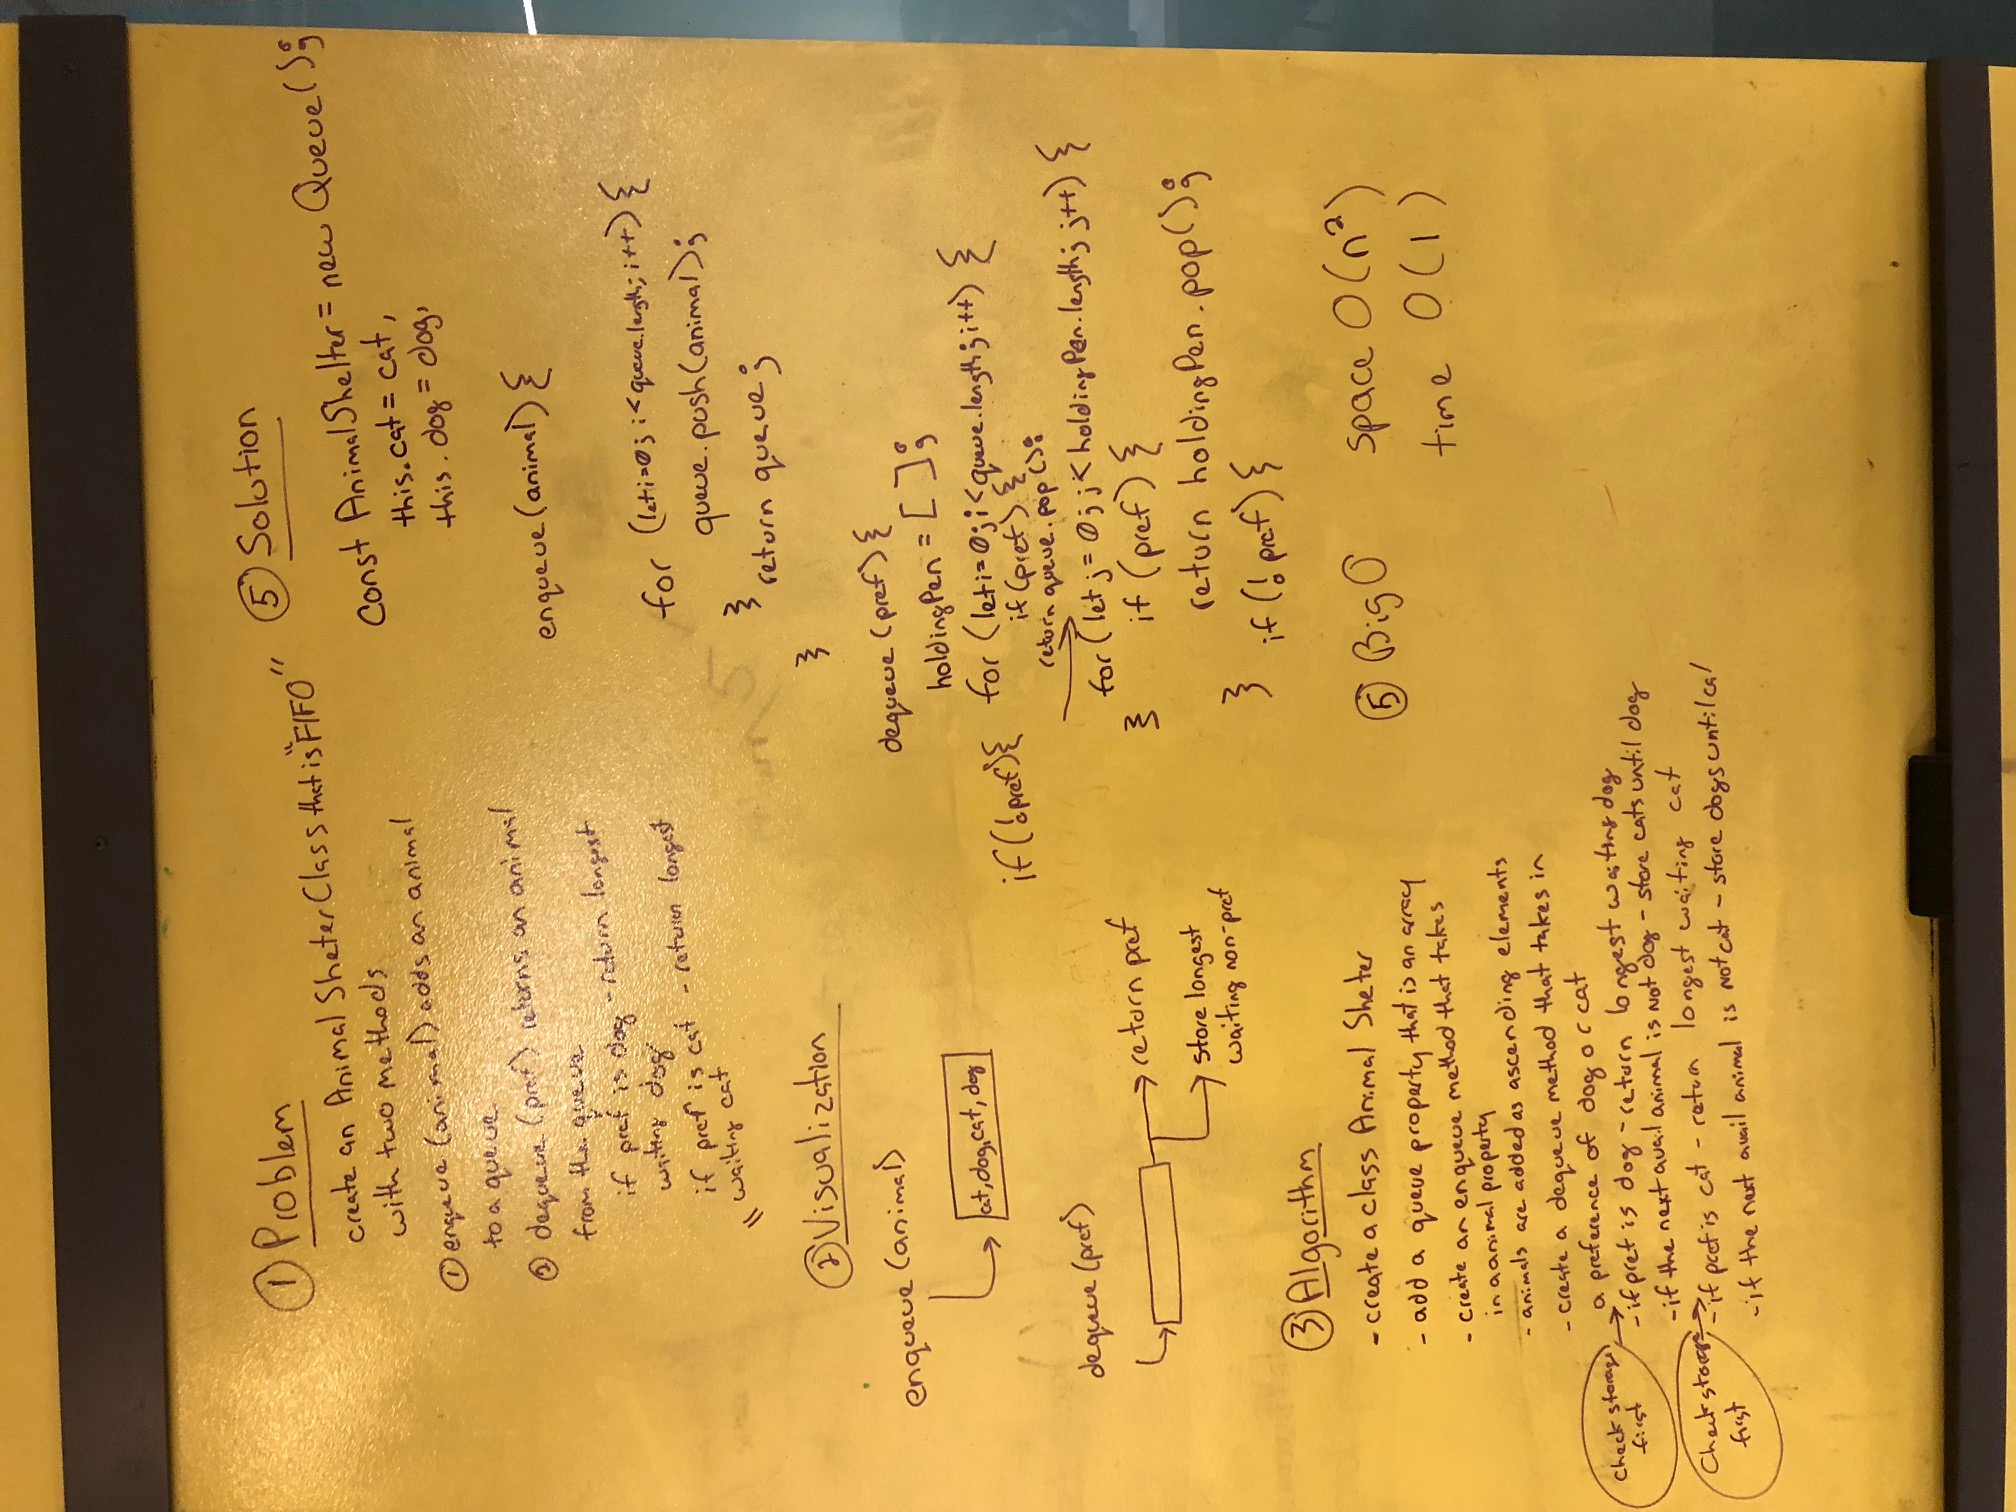 ① Problem
create an Animal Sheter Class that is "FIFO"
with two methods
① enqueue (animal) adds an animal
to a queue
② dequeue (pref) returns an animal
from the queue
if pref is dog - return longest
waiting dog
if pref is cat - return longest
" waiting cat
② Visualization
enqueue (animal)
cat, dog, cat, dog
dequeue (pref)
return pref
store longest
waiting non-pref
③ Algorithm
- create a class Animal Sheter
- add a queue property that is an array
- create an enqueue method that takes
in a animal property
- animals are added as ascending elements
- create a dequeue method that takes in
a preference of dog or cat
Check storage
first
- if pref is dog - return longest waiting dog
- if the next avail animal is not dog - store cats until dog
Check storage
first
- if pref is cat - return longest waiting cat
- if the next avail animal is not cat - store dogs until cat
⑤ Solution
const AnimalShelter = new Queue();
this.cat = cat,
this.dog = dog,
enqueue (animal) {
for (let i=0; i<queue.length; i++) {
queue.push(animal);
}
return queue;
}
dequeue (pref) {
holdingPen = [ ];
if (!pref) {
for (let i=0; i<queue.length; i++) {
if (pref) {
return queue.pop();
for (let j = 0; j < holdingPen.length; j++) {
} if (pref) {
return holdingPen.pop();
} if (!pref) {
⑤ Big O space O(n²)
time O(1)